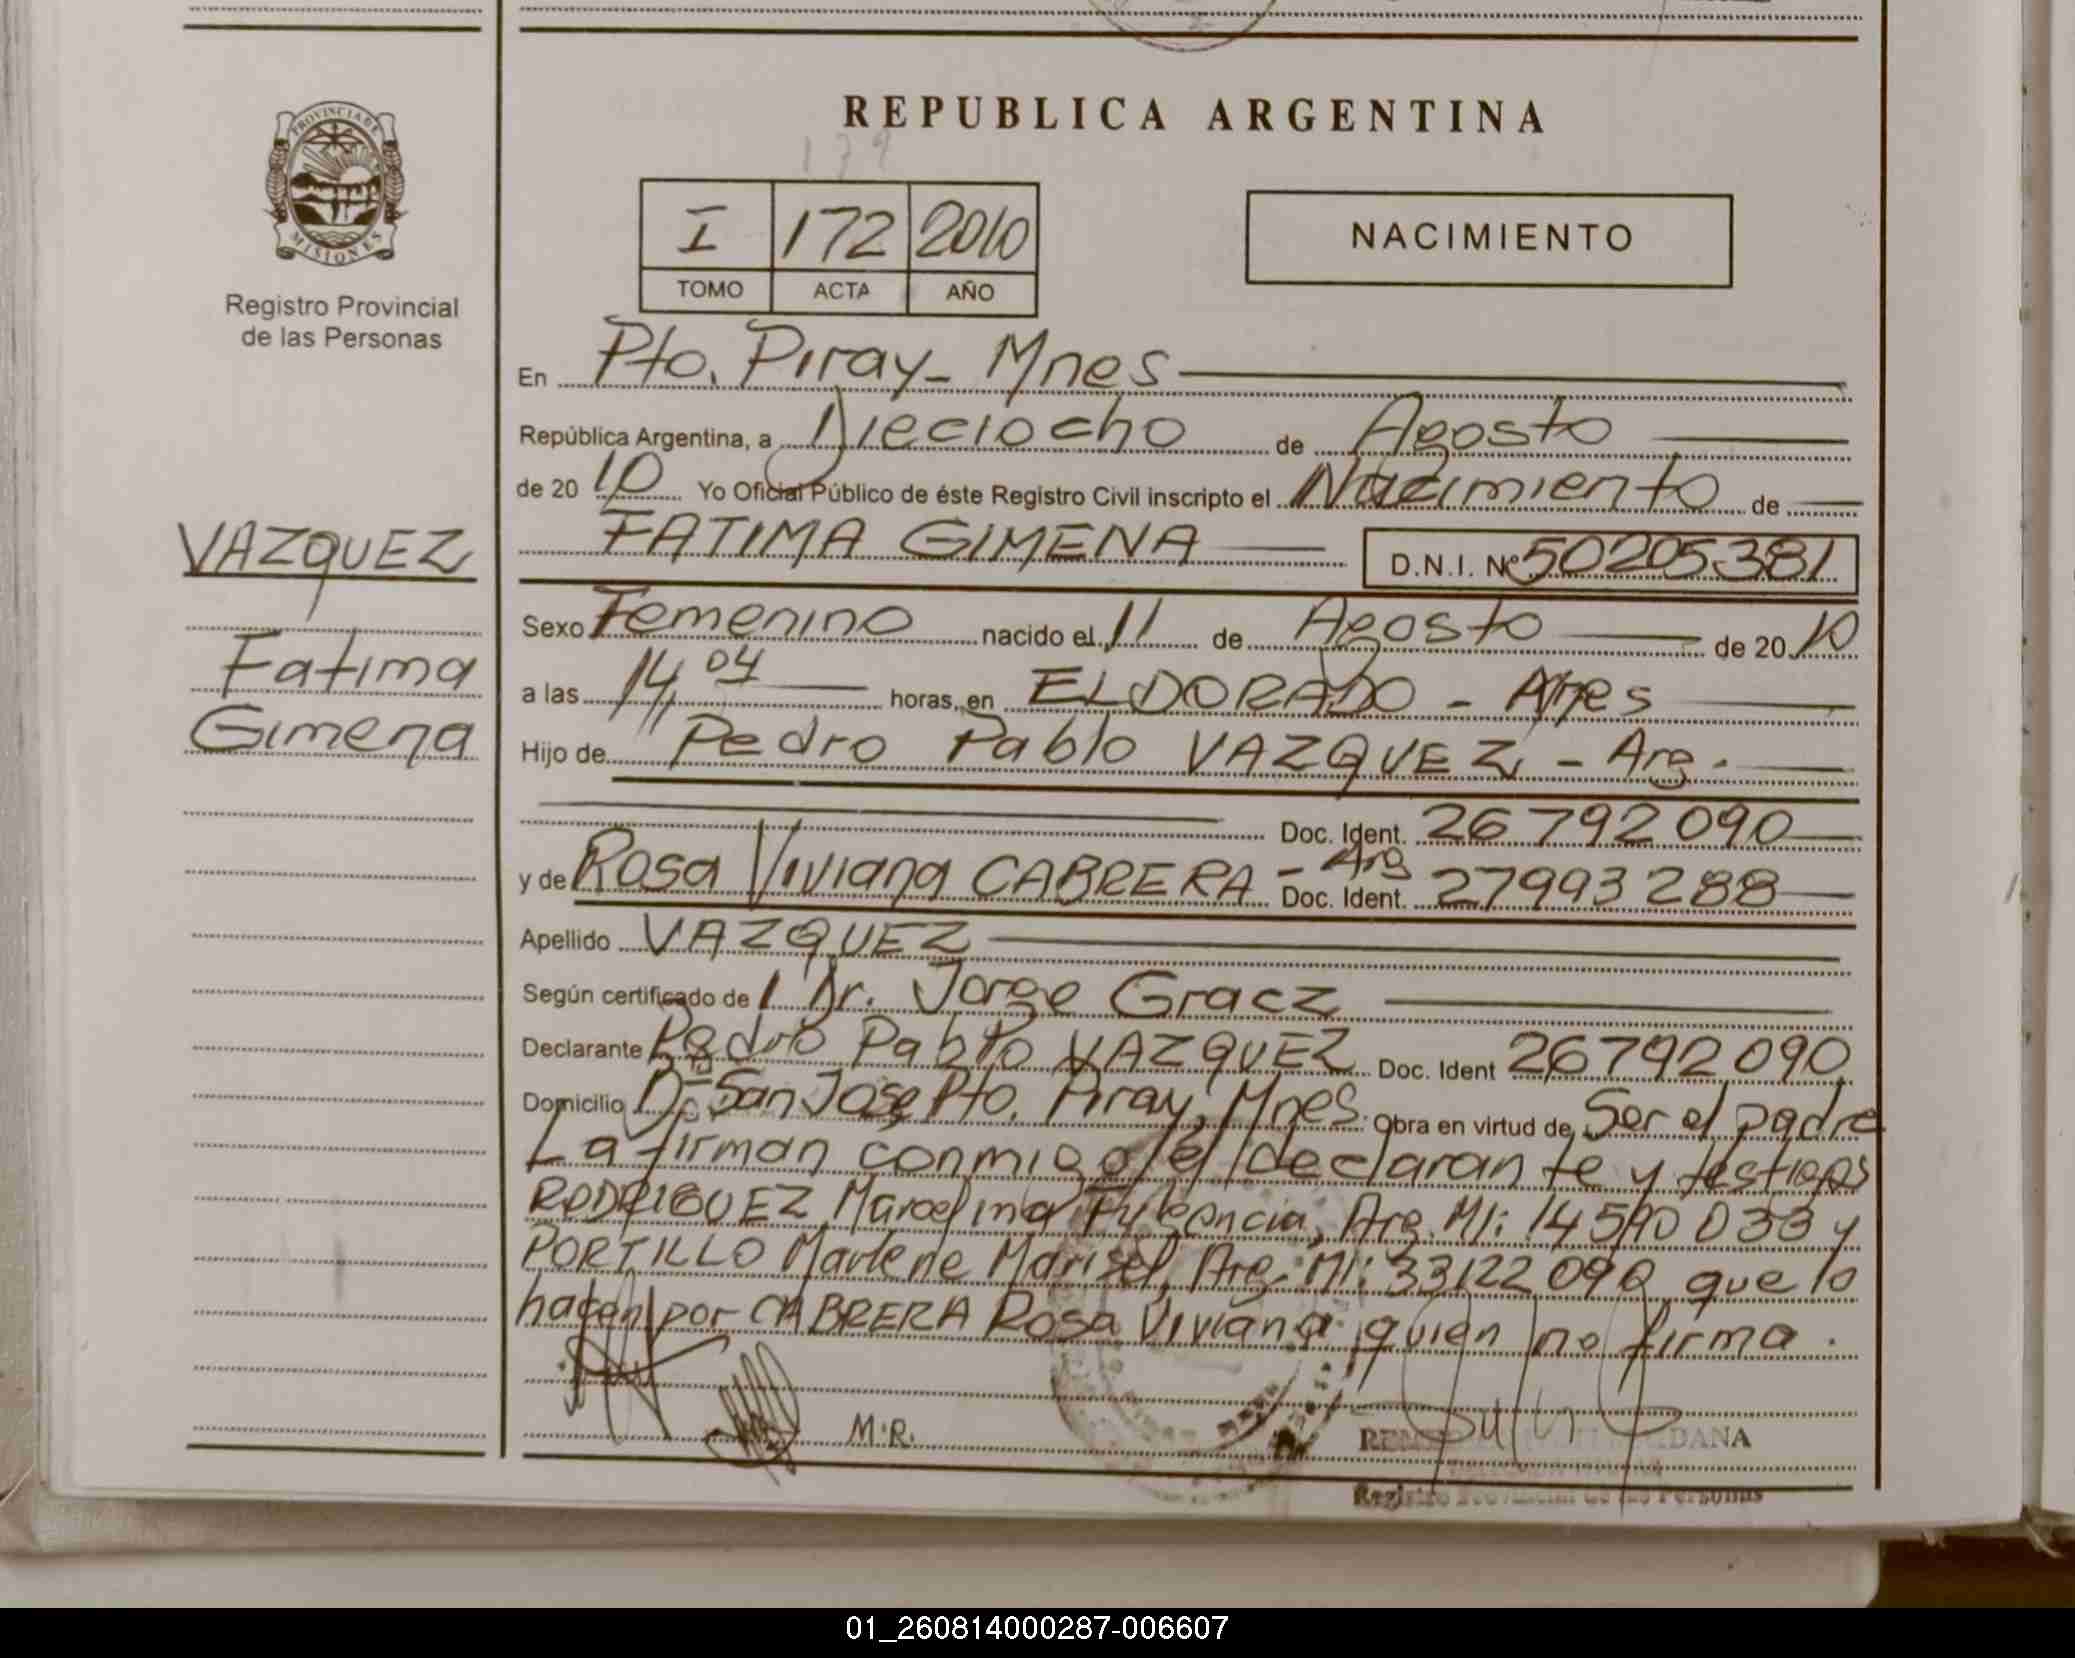 REPUBLICA ARGENTINA
PROVINCIA DE
MISIONES
Registro Provincial
de las Personas
139
I 172 2010
TOMO ACTA AÑO
NACIMIENTO
En Pto. Piray - Mnes
República Argentina, a Dieciocho de Agosto
de 20 10 Yo Oficial Público de éste Registro Civil inscripto el Nacimiento de
FATIMA GIMENA D.N.I. Nº 50205381
VAZQUEZ
Fatima
Gimena
Sexo Femenino nacido el 11 de Agosto de 20 10
a las 14,04 horas, en ELDORADO - Mnes
Hijo de Pedro Pablo VAZQUEZ - Arg.
Doc. Ident. 26792090
y de Rosa Viviana CABRERA - Arg Doc. Ident. 27993288
Apellido VAZQUEZ
Según certificado de Dr. Jorge Gracz
Declarante Pedro Pablo VAZQUEZ Doc. Ident 26792090
Domicilio Bº San Jose Pto. Piray, Mnes. Obra en virtud de Ser el padre
La firman conmigo el declarante y testigos
RODRIGUEZ Marcelina Fulgencia, Arg. MI: 14590033 y
PORTILLO Marlene Marisel, Arg. MI: 33122090 que lo
hacen por CABRERA Rosa Viviana quien no firma.
M.R.
Registro Provincial de las Personas
01_260814000287-006607